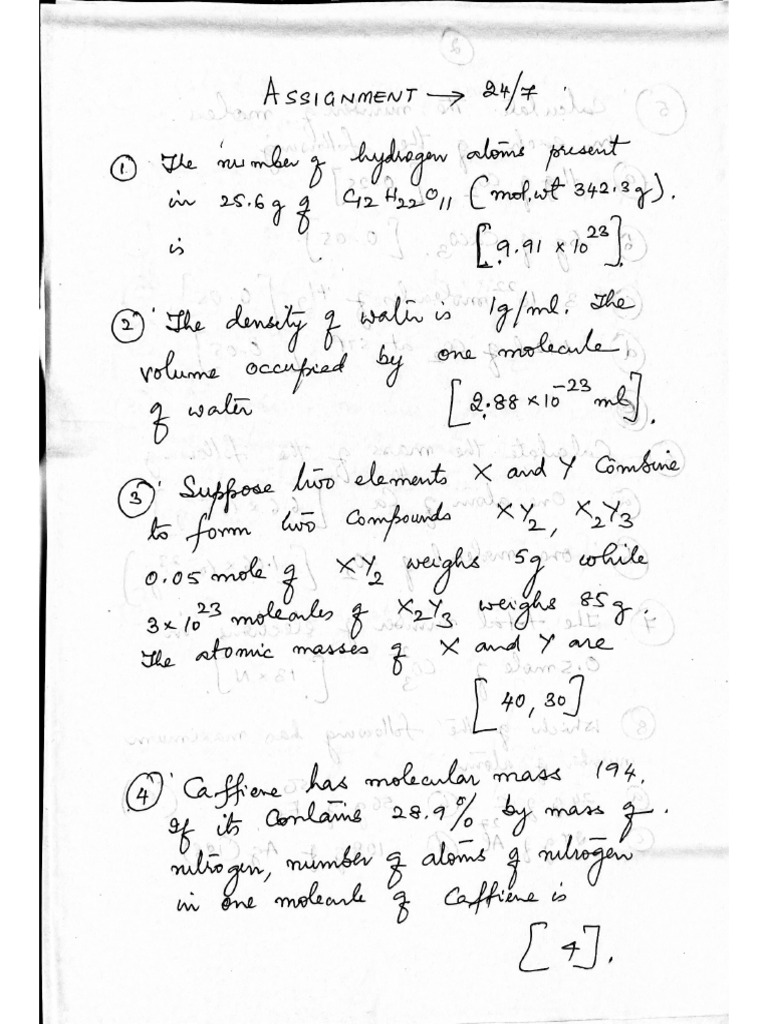 ASSIGNMENT → 24/7
① The number of hydrogen atoms present
in 25.6 g of C12 H22 O11 (mol.wt 342.3g).
is [9.91 × 10^23].
② The density of water is 1g/ml. The
volume occupied by one molecule
of water [2.88 × 10^-23 ml].
③ Suppose two elements X and Y Combine
to form two Compounds XY2, X2Y3
0.05 mole of XY2 weighs 5g while
3×10^23 molecules of X2Y3 weighs 85g.
The atomic masses of X and Y are
[40, 30]
④ Caffiene has molecular mass 194.
If its contains 28.9% by mass of
nitrogen, number of atoms of nitrogen
in one molecule of Caffiene is
[4].